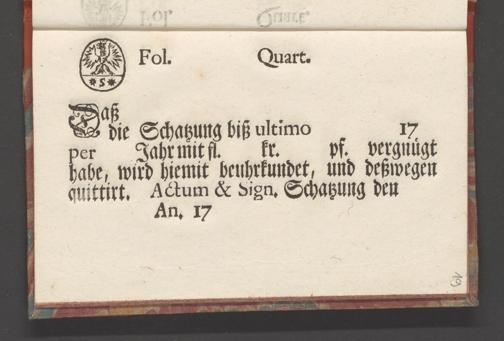 Fol. Quart.
* S *
Fol. Quart.
Daß
die Schatzung biß ultimo 17
per Jahr mit fl. kr. pf. vergnügt
habe, wird hiemit beuhrkundet, und deßwegen
quittirt. Actum & Sign. Schatzung den
An. 17
19